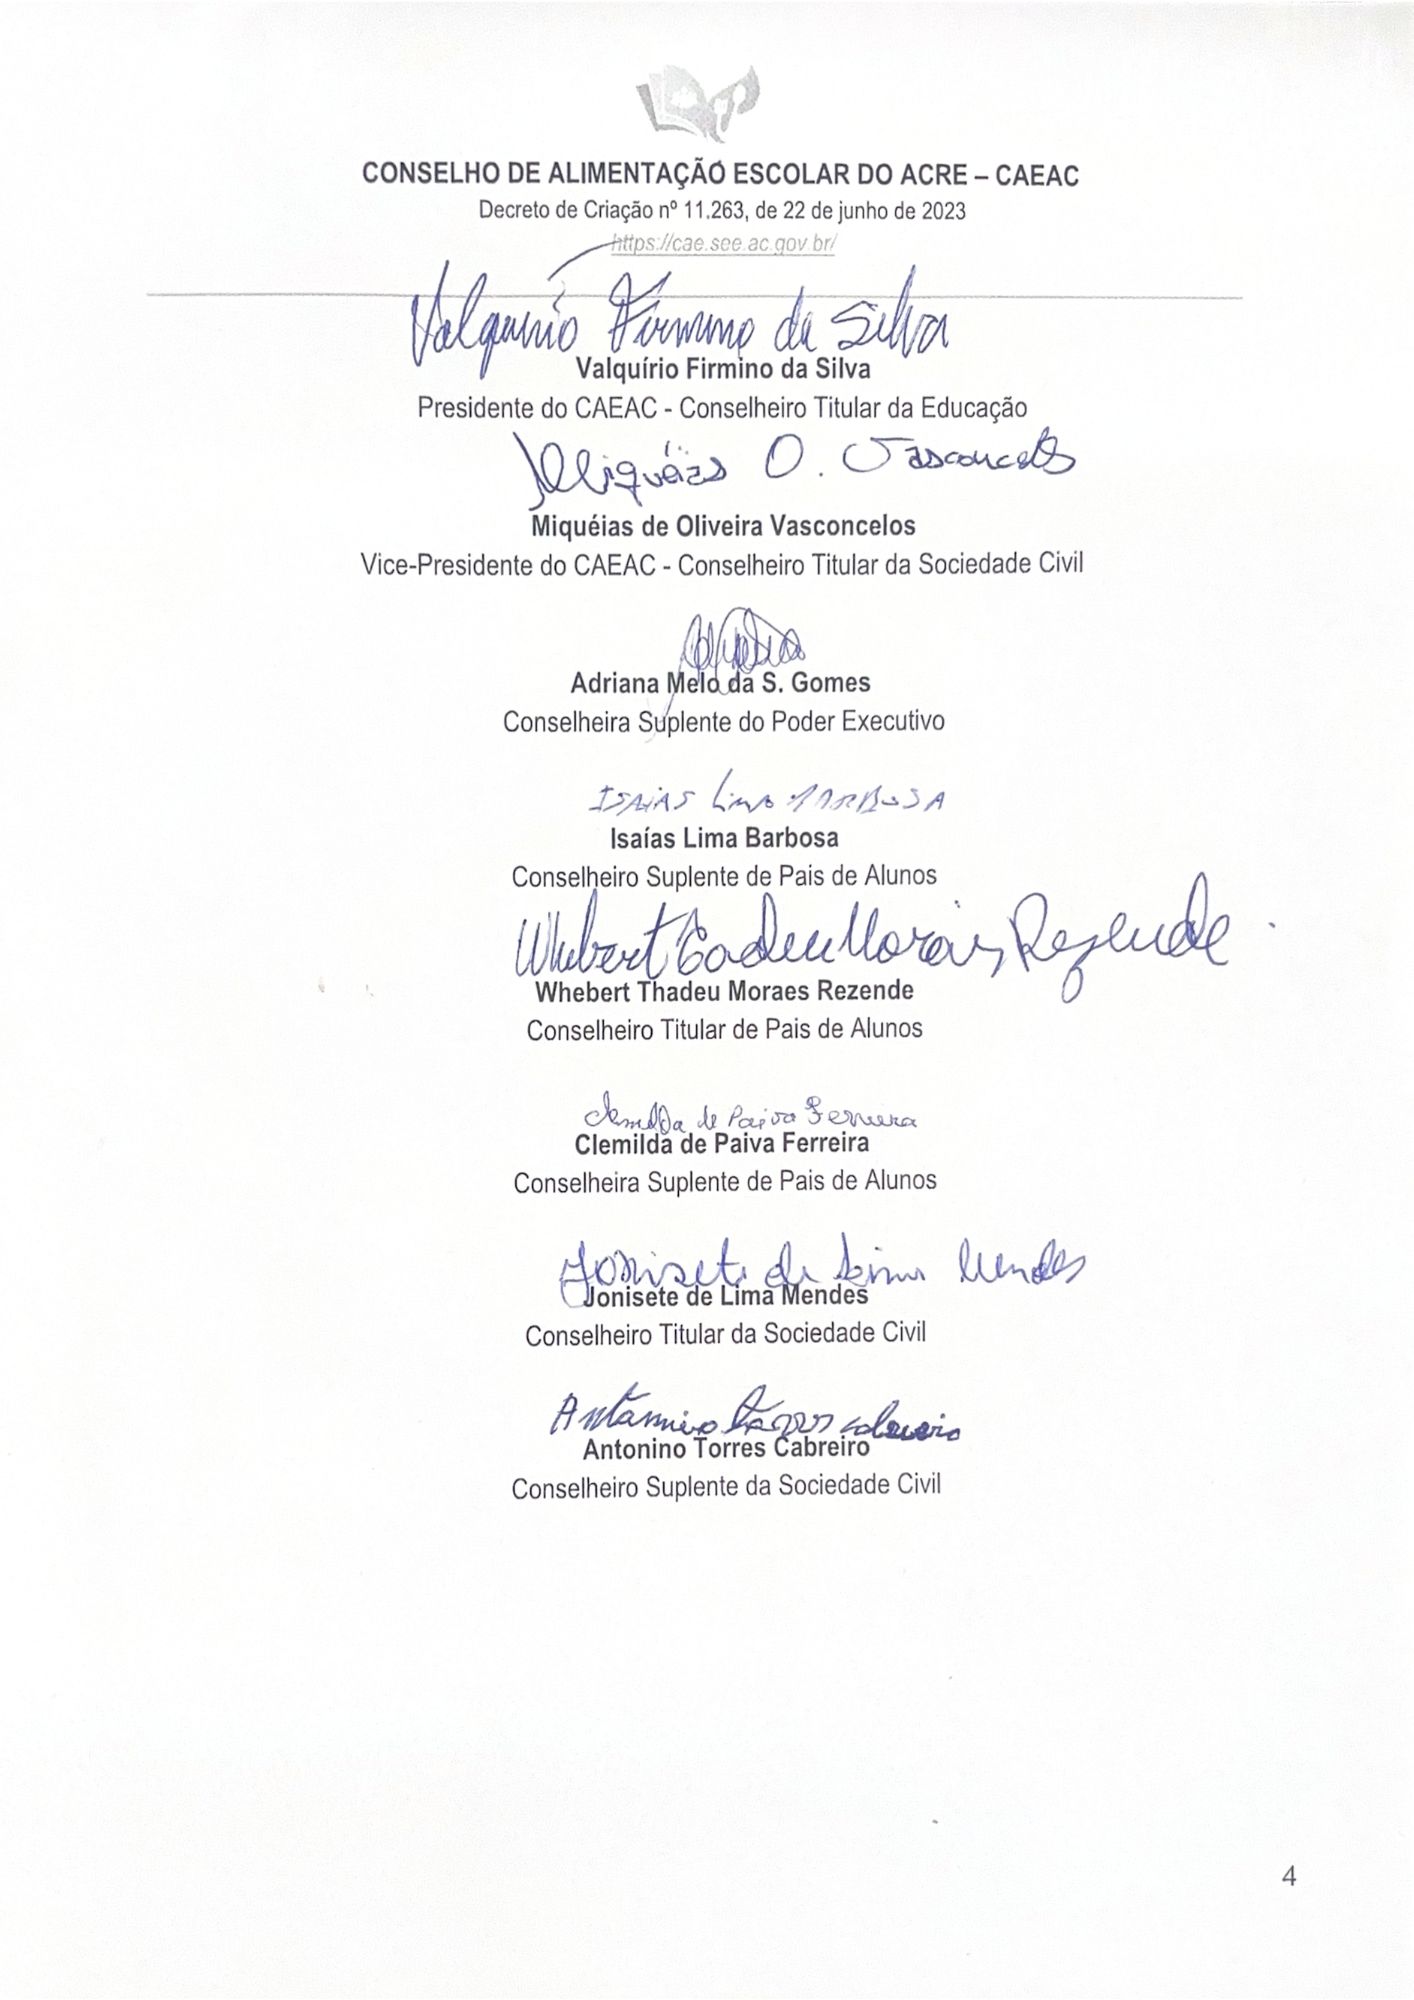 CONSELHO DE ALIMENTAÇÃO ESCOLAR DO ACRE – CAEAC
Decreto de Criação nº 11.263, de 22 de junho de 2023
https://cae.see.ac.gov.br/
Valquirio Firmino da Silva
Valquírio Firmino da Silva
Presidente do CAEAC - Conselheiro Titular da Educação
Miquéias O. Vasconcelos
Miquéias de Oliveira Vasconcelos
Vice-Presidente do CAEAC - Conselheiro Titular da Sociedade Civil
Adriana Melo da S. Gomes
Conselheira Suplente do Poder Executivo
ISAIAS Lima BARBOSA
Isaías Lima Barbosa
Conselheiro Suplente de Pais de Alunos
Whebert Morais Rezende
Whebert Thadeu Moraes Rezende
Conselheiro Titular de Pais de Alunos
Clemilda de Paiva Ferreira
Clemilda de Paiva Ferreira
Conselheira Suplente de Pais de Alunos
Jonisete de Lima Mendes
Jonisete de Lima Mendes
Conselheiro Titular da Sociedade Civil
Antonino Torres Cabreiro
Antonino Torres Cabreiro
Conselheiro Suplente da Sociedade Civil
4